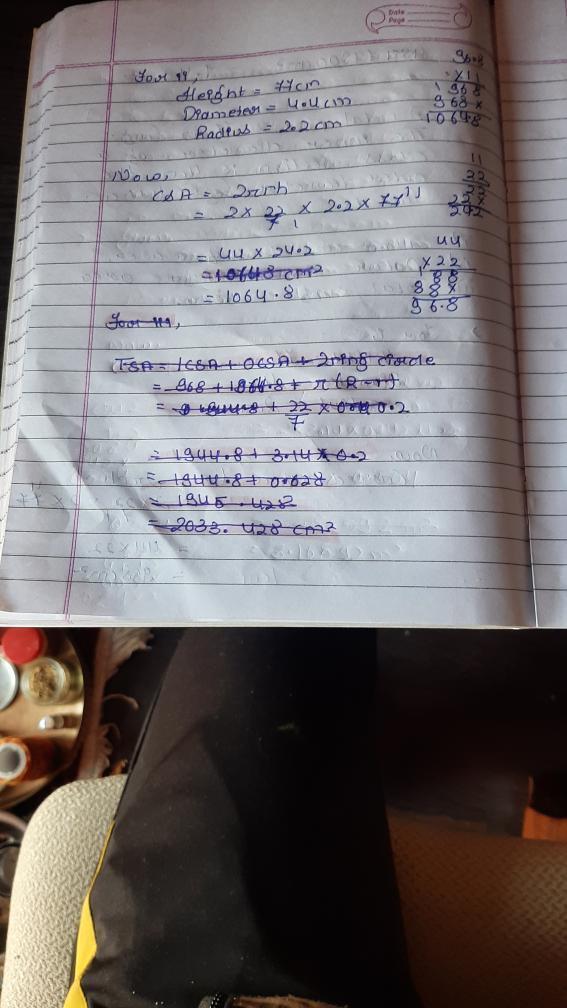 Date
Page
For ii,
Height = 77cm
Diameter = 4.4cm
Radius = 2.2cm
96.8
×11
968
968×
10648
Now,
CSA = 2πrh
= 2 × 22/7 × 2.2 × 77 11
= 44 × 24.2
= 10648 cm²
= 1064.8
11
22
22
22×
242
44
×22
88
88×
96.8
For iii,
TSA = ICSA + OCSA + 2ring circle
= 968 + 1064.8 + π(R-r)
+ 22/7 × 0.2
= 1944.8 + 3.14 × 0.2
= 1944.8 + 0.628
= 1945.428
= 2033.428 cm²